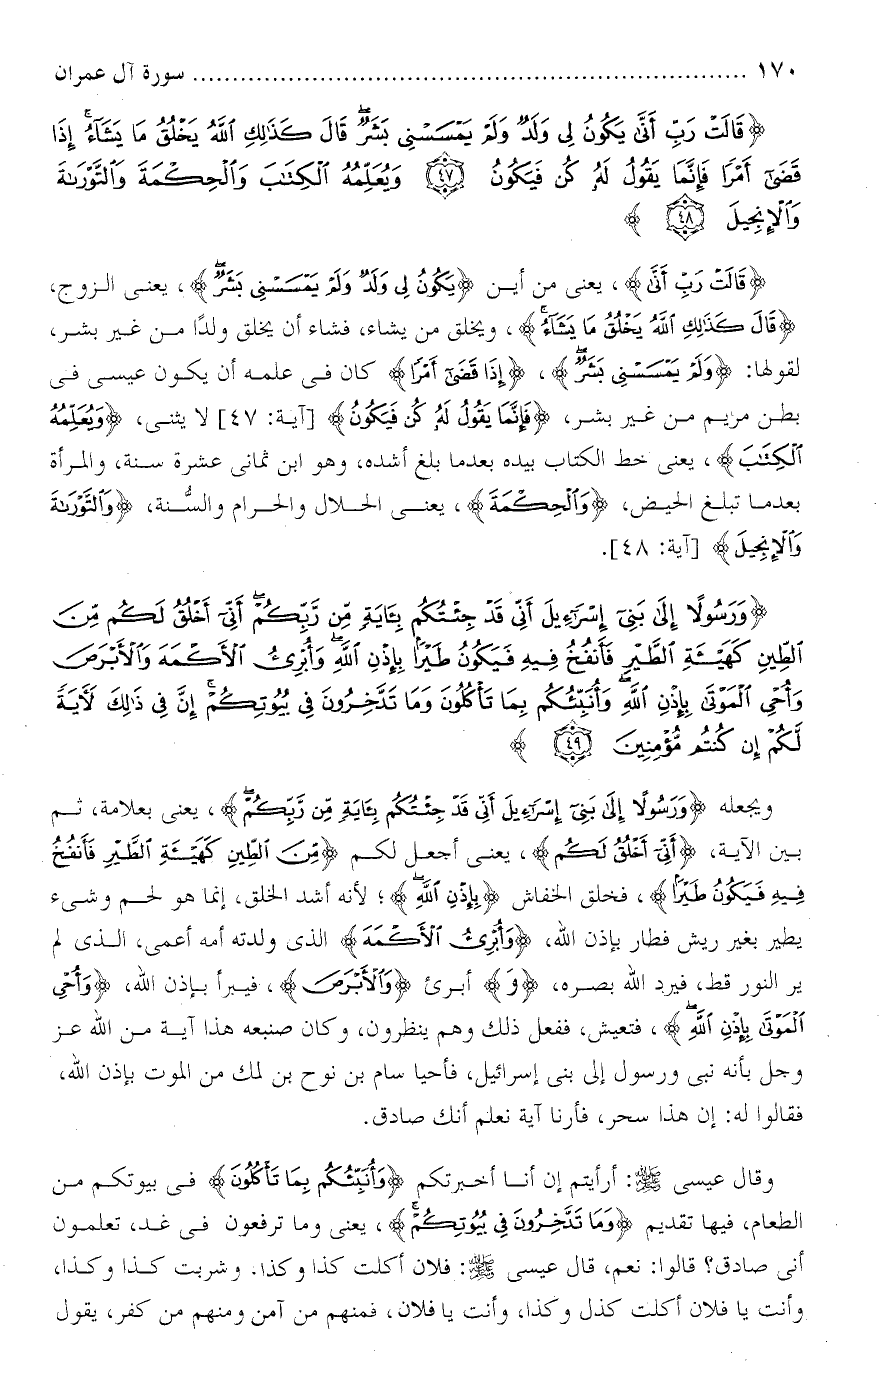 ١٧٠ ........................................................................ سورة آل عمران
﴿قَالَتْ رَبِّ أَنَّىٰ يَكُونُ لِي وَلَدٌ وَلَمْ يَمْسَسْنِي بَشَرٌۖ قَالَ كَذَٰلِكِ ٱللَّهُ يَخْلُقُ مَا يَشَآءُۚ إِذَا
قَضَىٰٓ أَمْرًا فَإِنَّمَا يَقُولُ لَهُۥ كُن فَيَكُونُ ٤٧ وَيُعَلِّمُهُ ٱلْكِتَٰبَ وَٱلْحِكْمَةَ وَٱلتَّوْرَىٰةَ
وَٱلْإِنجِيلَ ٤٨ ﴾
﴿قَالَتْ رَبِّ أَنَّىٰ﴾، يعنى من أيـن ﴿يَكُونُ لِي وَلَدٌ وَلَمْ يَمْسَسْنِي بَشَرٌۖ﴾، يعنـى الـزوج،
﴿قَالَ كَذَٰلِكِ ٱللَّهُ يَخْلُقُ مَا يَشَآءُۚ﴾، ويخلق من يشاء، فشاء أن يخلق ولدًا مـن غـير بشـر،
لقولها: ﴿وَلَمْ يَمْسَسْنِي بَشَرٌۖ﴾، ﴿إِذَا قَضَىٰٓ أَمْرًا﴾ كان فـى علمـه أن يكـون عيسـى فـى
بطـن مريـم مـن غـير بشـر، ﴿فَإِنَّمَا يَقُولُ لَهُۥ كُن فَيَكُونُ﴾ [آيـة: ٤٧] لا يثنـى، ﴿وَيُعَلِّمُهُ
ٱلْكِتَٰبَ﴾، يعنى خط الكتاب بيده بعدما بلغ أشده، وهو ابن ثمانى عشرة سـنة، والمـرأة
بعدمـا تبلـغ الحيـض، ﴿وَٱلْحِكْمَةَ﴾، يعنـى الحـلال والحـرام والسُّـنة، ﴿وَٱلتَّوْرَىٰةَ
وَٱلْإِنجِيلَ﴾ [آية: ٤٨].
﴿وَرَسُولًا إِلَىٰ بَنِيٓ إِسْرَٰٓءِيلَ أَنِّي قَدْ جِئْتُكُم بِـَٔايَةٍ مِّن رَّبِّكُمْۖ أَنِّيٓ أَخْلُقُ لَكُم مِّنَ
ٱلطِّينِ كَهَيْـَٔةِ ٱلطَّيْرِ فَأَنفُخُ فِيهِ فَيَكُونُ طَيْرًۢا بِإِذْنِ ٱللَّهِۖ وَأُبْرِئُ ٱلْأَكْمَهَ وَٱلْأَبْرَصَ
وَأُحْيِ ٱلْمَوْتَىٰ بِإِذْنِ ٱللَّهِۖ وَأُنَبِّئُكُم بِمَا تَأْكُلُونَ وَمَا تَدَّخِرُونَ فِي بُيُوتِكُمْۚ إِنَّ فِي ذَٰلِكَ لَءَايَةً
لَّكُمْ إِن كُنتُم مُّؤْمِنِينَ ٤٩ ﴾
ويجعله ﴿وَرَسُولًا إِلَىٰ بَنِيٓ إِسْرَٰٓءِيلَ أَنِّي قَدْ جِئْتُكُم بِـَٔايَةٍ مِّن رَّبِّكُمْۖ﴾، يعنى بعلامة، ثـم
بـين الآيـة، ﴿أَنِّيٓ أَخْلُقُ لَكُم﴾، يعنـى أجعـل لكـم ﴿مِّنَ ٱلطِّينِ كَهَيْـَٔةِ ٱلطَّيْرِ فَأَنفُخُ
فِيهِ فَيَكُونُ طَيْرًۢا﴾، فخلق الخفاش ﴿بِإِذْنِ ٱللَّهِۖ﴾؛ لأنه أشد الخلق، إنما هو لحـم وشـىء
يطير بغير ريش فطار بإذن الله، ﴿وَأُبْرِئُ ٱلْأَكْمَهَ﴾ الذى ولدته أمه أعمى، الـذى لم
ير النور قط، فيرد الله بصـره، ﴿وَ﴾ أبـرئ ﴿وَٱلْأَبْرَصَ﴾، فيـبرأ بـإذن الله، ﴿وَأُحْيِ
ٱلْمَوْتَىٰ بِإِذْنِ ٱللَّهِۖ﴾، فتعيش، ففعل ذلك وهم ينظرون، وكان صنيعه هذا آيـة مـن الله عـز
وجل بأنه نبى ورسول إلى بنى إسرائيل، فأحيا سام بن نوح بن لمك من الموت بإذن الله،
فقالوا له: إن هذا سحر، فأرنا آية نعلم أنك صادق.
وقال عيسى ﷺ: أرأيتم إن أنـا أخـبرتكم ﴿وَأُنَبِّئُكُم بِمَا تَأْكُلُونَ﴾ فـى بيوتكـم مـن
الطعام، فيها تقديم ﴿وَمَا تَدَّخِرُونَ فِي بُيُوتِكُمْۚ﴾، يعنى وما ترفعون فـى غـد، تعلمـون
أنى صادق؟ قالوا: نعم، قال عيسى ﷺ: فلان أكلت كذا وكذا. وشربت كـذا وكـذا،
وأنت يا فلان أكلت كذل وكذا، وأنت يا فلان، فمنهم من آمن ومنهم من كفر، يقول